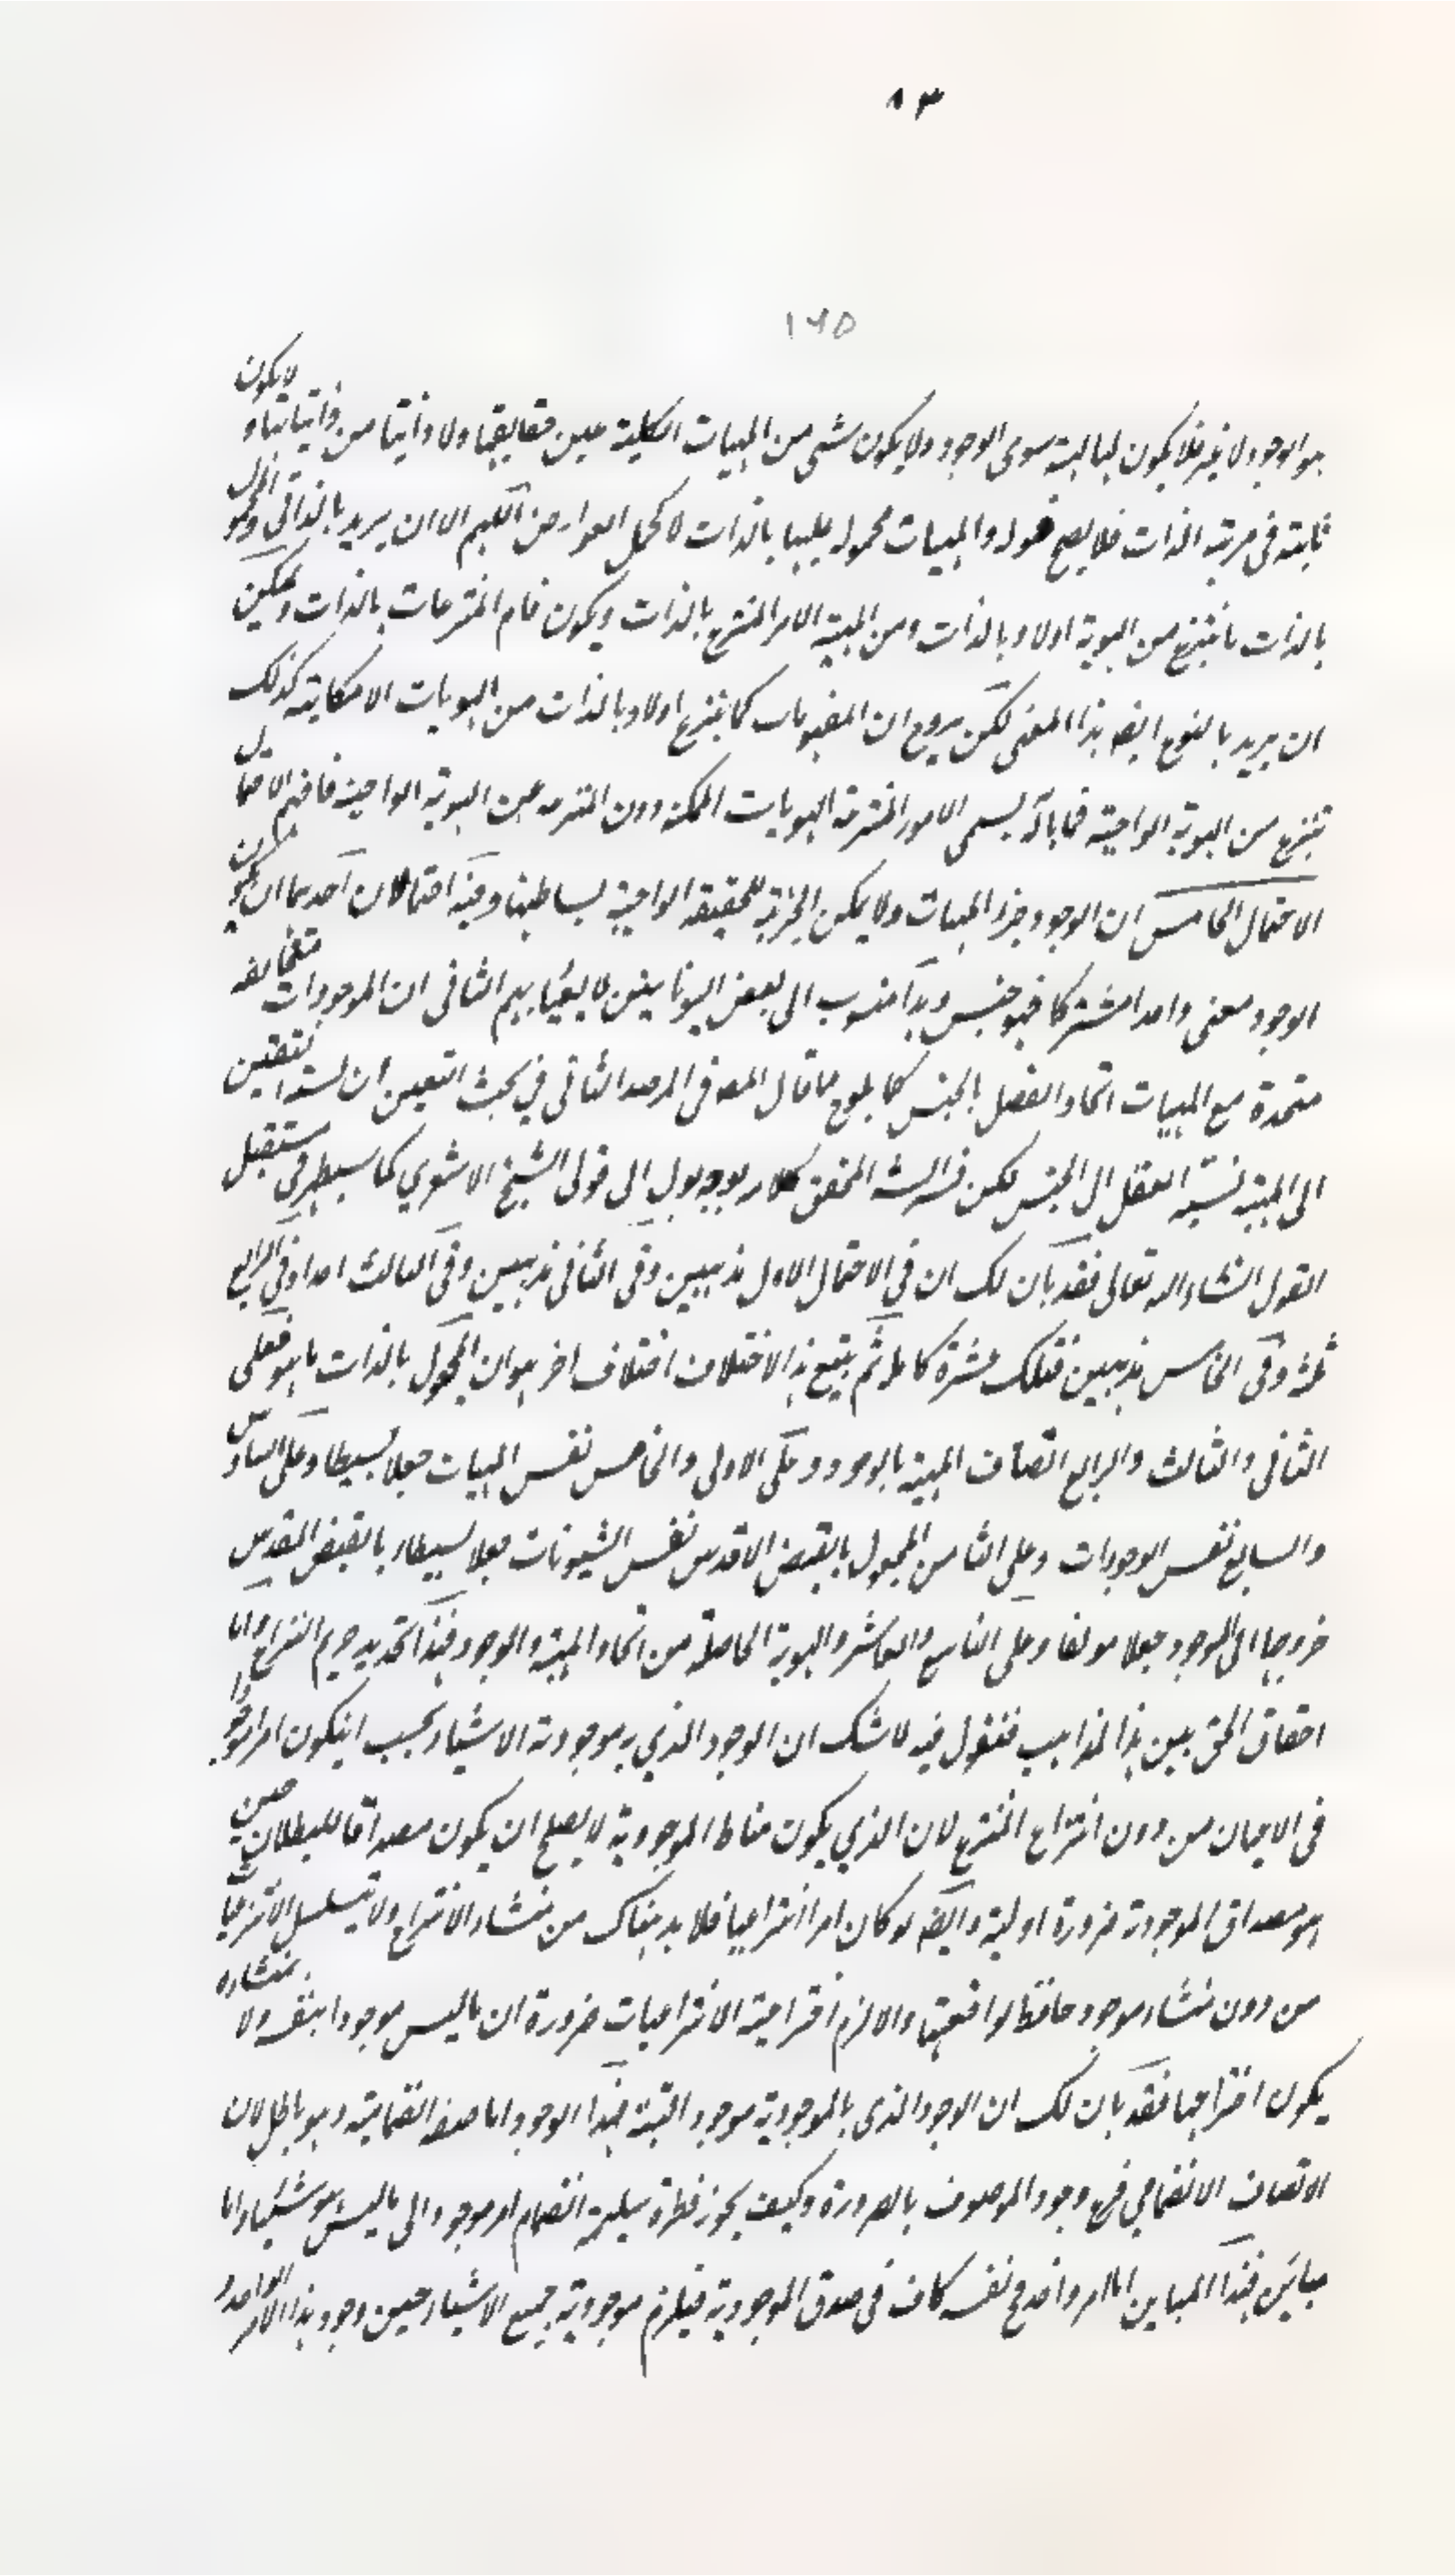 ٨٣
١٦٥
هو الوجود لا غير فلا يكون لها مهية سوى الوجود ولا يكون شئ من المهيات الكلية عين حقايقها ولا ذاتيا من ذاتياتها و لا يكون
ثابتة في مرتبة الذات فلا يصح قوله والمهيات محمولة عليها بالذات لا كحمل العوارض اللهم الا ان يريد بالذاتي والمحمول
بالذات ما ينتزع من الهوية اولا وبالذات ومن المهية الامر المنتزع بالذات ويكون قام المنتزعات بالذات ويمكن
ان يريد بالنوع ايضا هذا المعنى لكن يروح ان المفهومات كما ينتزع اولا وبالذات من الهويات الامكانية كذلك
تنتزع من الهوية الواجبة فما باله يسمى الامور المنتزعة الهويات الممكنة دون المنتزعة عن الهوية الواجبة فافهم الاحتمال
الاحتمال الخامس ان الوجود جزء المهيات ولا يمكن الجزئية للحقيقة الواجبة لبساطتها وفيه احتمالان احدهما ان يكون
الوجود معنى واحدا مشتركا فهو جنس وهذا منسوب الى بعض اليونانيين لا يعبأ بهم الثاني ان الموجودات متخالفة
متحدة مع المهيات اتحاد الفصل بالجنس كما يلوح مما قال المص في المرصد الثاني في بحث التعين ان نسبة التعين
الى المهية نسبة الفصل الى الجنس لكن فسر الشارح المحقق كلامه بوجه يؤل الى قول الشيخ الاشعري كما سيظهر في مستقبل
القول انشاء الله تعالى فقد بان لك ان في الاحتمال الاول مذهبين وفي الثاني مذهبين وفي الثالث احدا وفي الرابع
ثلثة وفي الخامس مذهبين فتلك عشرة كاملة ثم يتبع هذا الاختلاف اختلاف اخر هو ان المجعول بالذات ما هو فعلى
الثاني والثالث والرابع اتصاف المهية بالوجود وعلى الاول والخامس نفس المهيات جعلا بسيطا وعلى السادس
والسابع نفس الوجودات وعلى الثامن المجعول بالفيض الاقدس نفس الشيونات جعلا بسيطا وبالفيض المقدس
خروجها الى الوجود جعلا مولفا وعلى التاسع والعاشر والهوية الحاصلة من اتحاد المهية والوجود فهذا تحديد حريم النزاع واما
احقاق الحق بين هذا المذاهب فنقول فيه لا شك ان الوجود الذي به موجودية الاشياء يجب ان يكون امرا موجودا
في الاعيان من دون انتزاع المنتزع لان الذي يكون مناط الموجودية لا يصلح ان يكون مصداقا للبطلان حين
هو مصداق الموجودية ضرورة اولية وايضا لو كان امرا انتزاعيا فلا بد هناك من منشاء الانتزاع ولا تتسلسل الانتزاعيات
من دون منشاء موجود حافظ لواقعيتها والا لزم اختراعية الانتزاعيات ضرورة ان ما ليس موجودا بنفسه ولا بمنشاءه
يكون اختراعيا فقد بان لك ان الوجود الذي به الموجودية موجود البتة فهذا الوجود اما صفة انضمامية وهو باطل لان
الاتصاف الانضمامي فرع وجود الموصوف بالضرورة وكيف يجوز فطرة سليمة انضمام امر موجود الى ما ليس هو شيئا واما
مباين فهذا المباين اما امر واحد في نفسه كاف في صدق الموجودية فيلزم موجودية جميع الاشياء حين وجود هذا الامر الواحد و